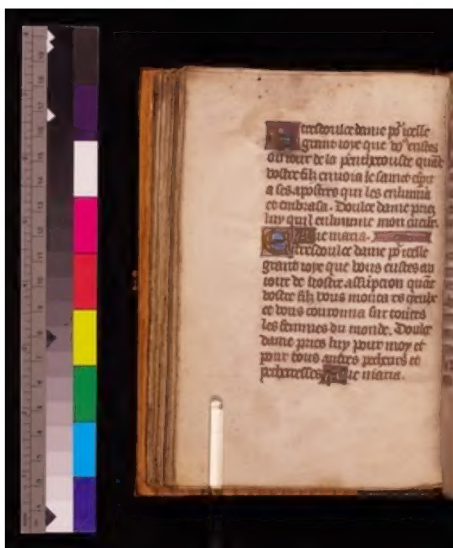 E tresdoulce dame po² icelle
grant ioye que vo⁹ eustes
au iour de la penthecouste quāt
vostre filz enuoia le sainct espīt
a ses apostres qui les enlumia
et enbrasa. Doulce dame priez
luy quil enlumine mon cueur.
Aue maria.
E tresdoulce dame po² icelle
grant ioye que vous eustes au
iour de vostre assumpcion quāt
vostre filz vous monta es cieulx
et vous couronna sur toutes
les femmes du monde. Doulce
dame pries luy pour moy et
pour tous autres pecheurs et
pecheresses Aue maria.